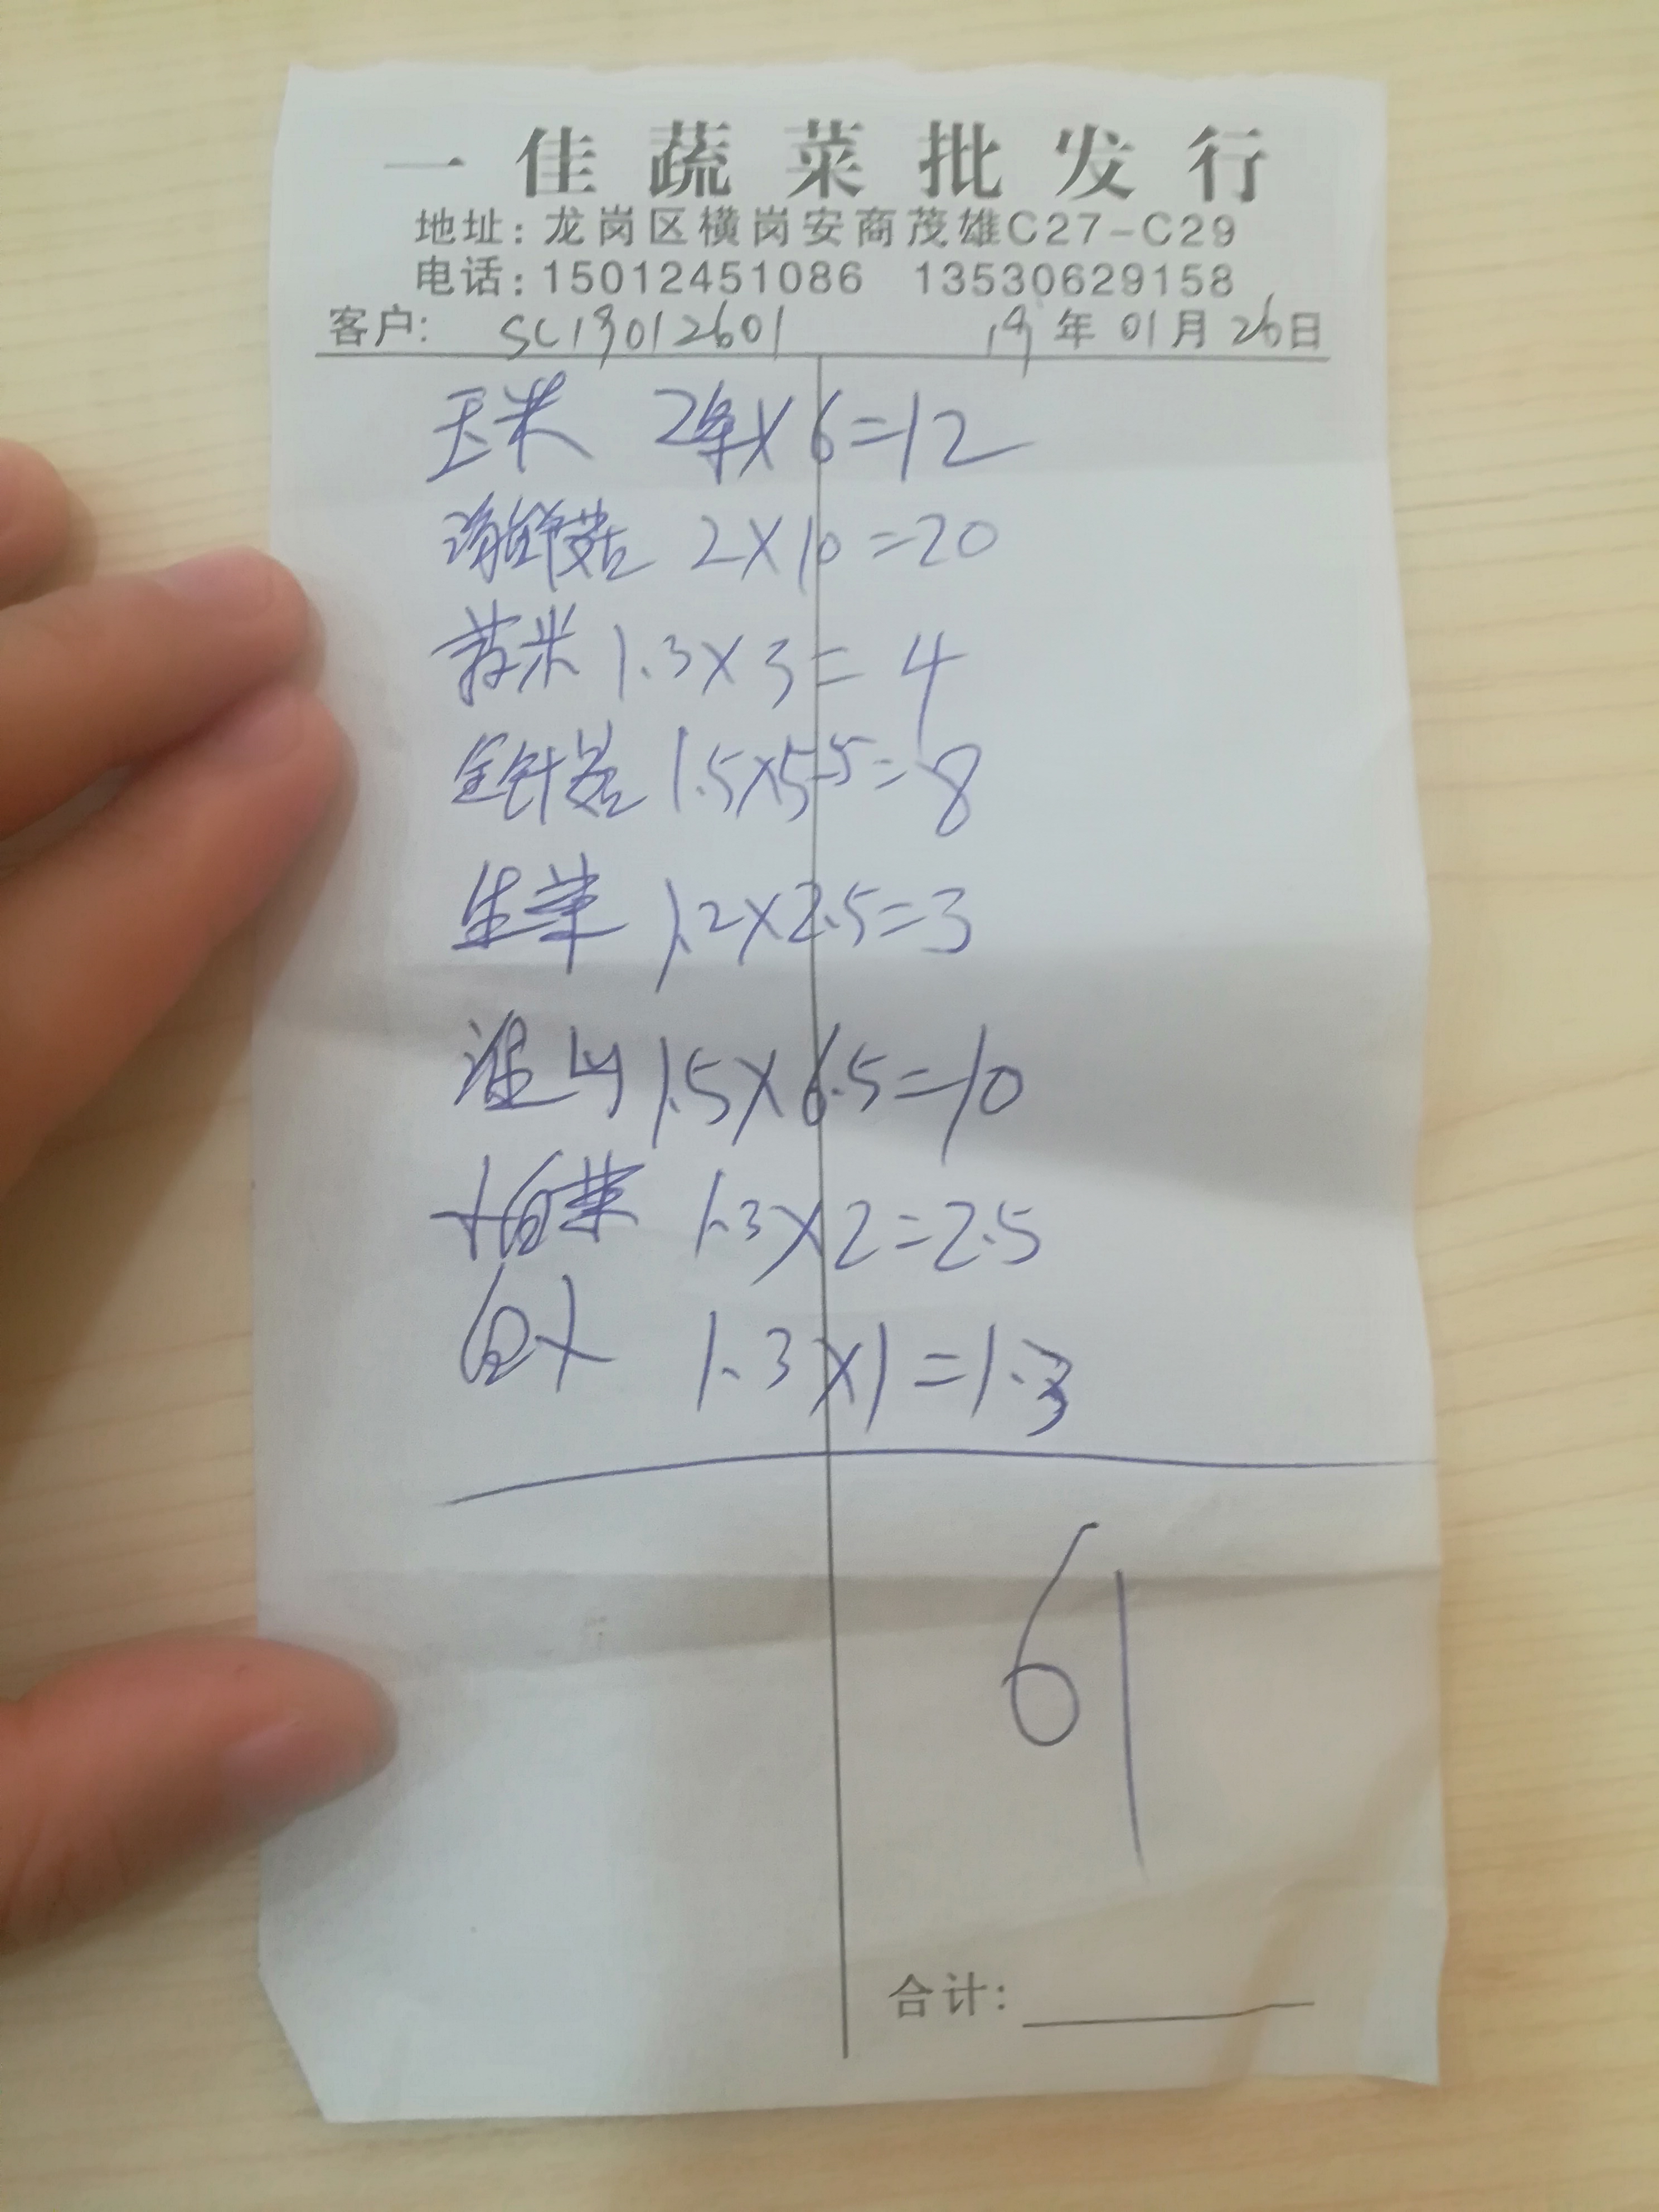 一佳蔬菜批发行
地址：龙岗区横岗安商茂雄C27-C29
电话：15012451086 13530629158
客户： SC19012601 19年01月26日
玉米 2件×6=12
海鲜菇 2×10=20
1.3×3=4
金针菇 1.5×5.5=8
生菜 1.2×2.5=3
淮山 1.5×6.5=10
大白菜 1.3×2=2.5
白卜 1.3×1=1.3
61
合计：